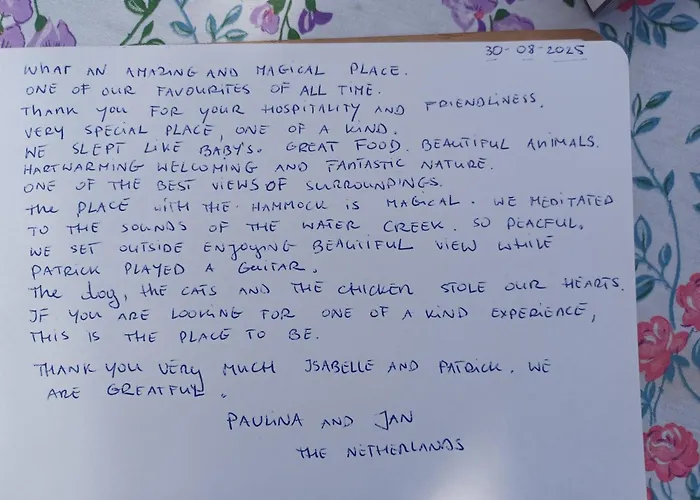 30-08-2025
WHAT AN AMAZING AND MAGICAL PLACE.
ONE OF OUR FAVOURITES OF ALL TIME.
Thank you FOR your HOSPITALITY AND FRIENDLINESS.
VERY SPECIAL PLACE, ONE OF A KIND.
WE SLEPT LIKE BABY'S. GREAT FOOD. BEAUTIFUL ANIMALS.
HARTWARMING WELCOMING AND FANTASTIC NATURE.
ONE OF THE BEST VIEWS OF SURROUNDINGS.
The PLACE WITH THE HAMMOCK IS MAGICAL. WE MEDITATED
TO THE SOUNDS OF THE WATER CREEK. SO PEACFUL.
WE SET OUTSIDE ENJOYING BEAUTIFUL VIEW WHILE
PATRICK PLAYED A GUITAR.
The dog, the CATS AND THE CHICKEN STOLE OUR HEARTS.
IF YOU ARE LOOKING FOR ONE OF A KIND EXPERIENCE,
THIS IS THE PLACE TO BE.
THANK YOU VERY MUCH ISABELLE AND PATRICK. WE
ARE GREATFUL.
PAULINA AND JAN
THE NETHERLANDS